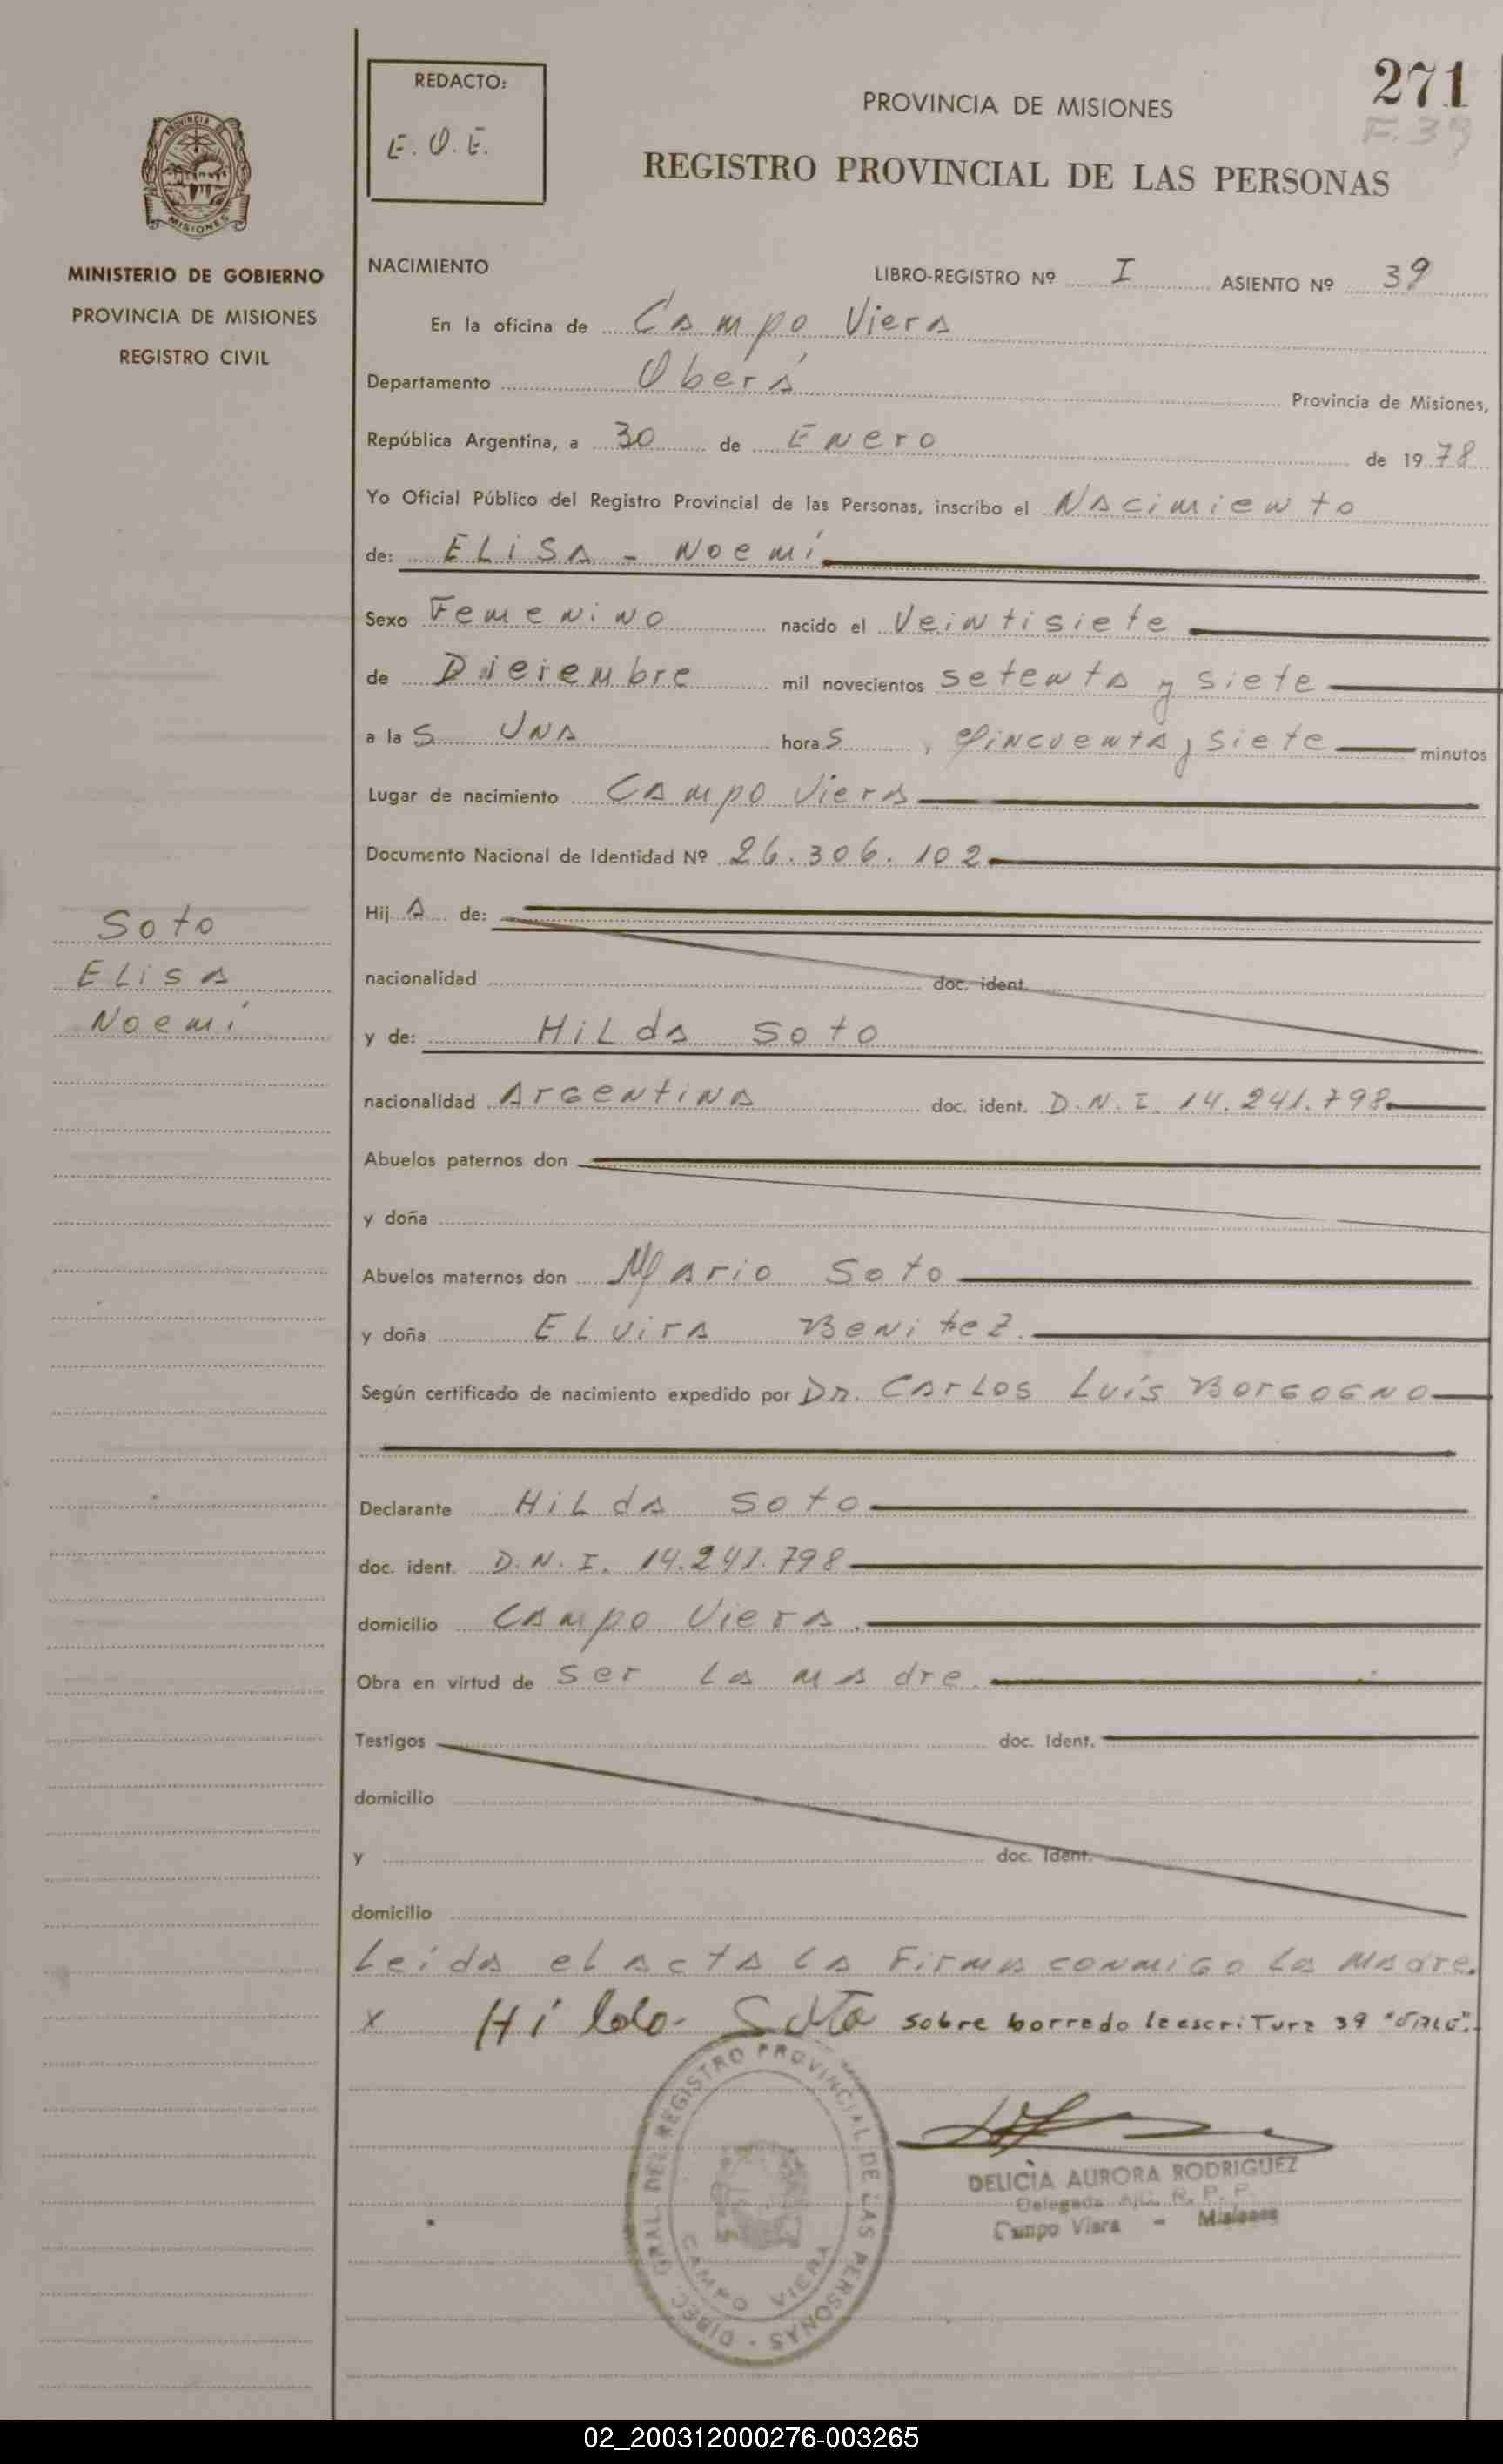 271
F. 39
REDACTO:
E. O. E.
PROVINCIA DE MISIONES
REGISTRO PROVINCIAL DE LAS PERSONAS
PROVINCIA DE
MISIONES
MINISTERIO DE GOBIERNO
PROVINCIA DE MISIONES
REGISTRO CIVIL
NACIMIENTO LIBRO-REGISTRO Nº I ASIENTO Nº 39
En la oficina de Campo Viera
Departamento Oberá Provincia de Misiones,
República Argentina, a 30 de Enero de 1978
Yo Oficial Público del Registro Provincial de las Personas, inscribo el Nacimiento
de: ELisa - Noemí
Sexo Femenino nacido el Veintisiete
de Diciembre mil novecientos setenta y siete
a las una horas, Cincuenta y siete minutos
Lugar de nacimiento Campo Viera
Documento Nacional de Identidad Nº 26.306.102
Hija de:
nacionalidad doc. ident.
y de: HiLda Soto
nacionalidad Argentina doc. ident. D.N.I. 14.241.798
Abuelos paternos don
y doña
Abuelos maternos don Mario Soto
y doña ELvira Benitez.
Según certificado de nacimiento expedido por Dr. Carlos Luís Borgogno
Declarante HiLda Soto
doc. ident. D.N.I. 14.241.798
domicilio Campo Viera.
Obra en virtud de ser La madre.
Testigos doc. Ident.
domicilio
y doc. Ident.
domicilio
Leída el acta La Firma conmigo La Madre.
x Hilda Soto sobre borrado leescriTura 39 "VALE".
Soto
ELisa
Noemí
DIREC. GRAL. DEL REGISTRO PROVINCIAL DE LAS PERSONAS
CAMPO VIERA
DELICIA AURORA RODRIGUEZ
Delegada A/C. R. P. P.
Campo Viera - Misiones
02_200312000276-003265